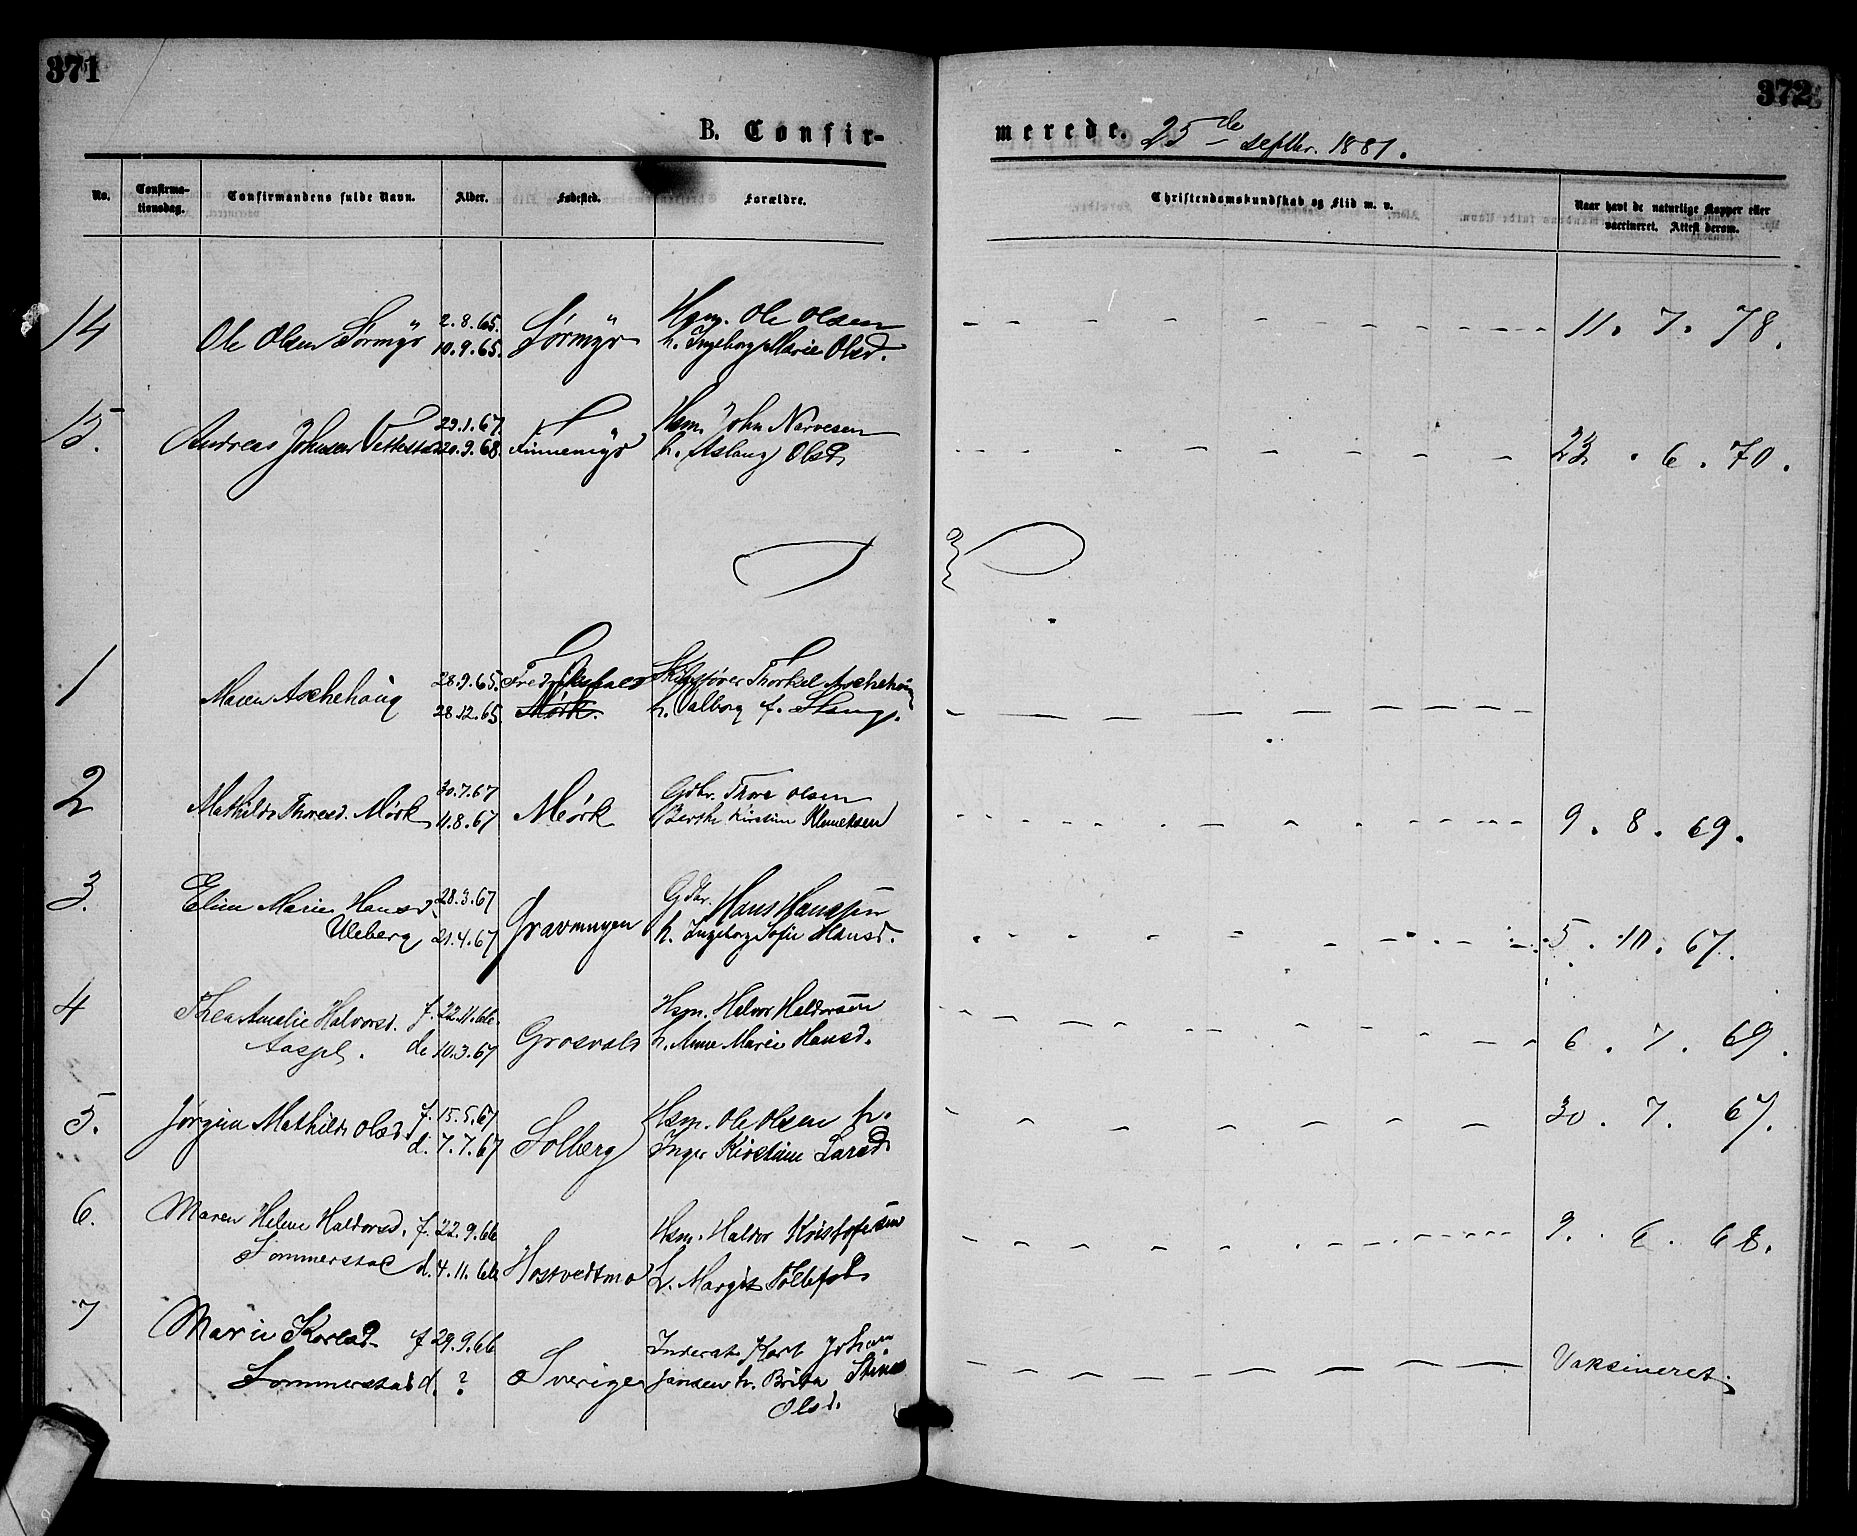 371
372
B. Confir-
merede. 25de septbr. 1881.
No. Confirma-tionsdag. Confirmandens fulde Navn. Alder. Fødested. Forældre. Christendomskundskab og Flid m. v. Naar havt de naturlige Kopper eller vaccineret. Attest derom.
14 Ole Olsen Sørmyr 2.8.65. 10.9.65. Sørmyr Hsm. Ole Olsen
h. Ingeborg Marie Olsd. 11. 7. 78.
15. Andreas Johnsen 29.1.67. 20.9.68. Finnemyr Hsm. John Narvesen
h. Aslaug Olsd. 23. 6. 70.
1 Maren Aschehoug 28.9.65. 28.12.65. Fredrikshald Mørk. Thorkel Aschehoug
h. Valborg f. Stang.
2 Mathilde Thoresd. Mørk 30.7.67 11.8.67 Mørk Gdbr. Thore Olsen
Berthe Kirstine Klemetsen 9. 8. 69.
3. Eline Marie Hansd. 28.3.67 Gdbr. Hans Hansen
Uleberg 21.4.67 h. Ingeborg Sofie Hansd. 5. 10. 67.
4 Thea Amalie Halvorsd. f. 22.11.66. Hsm. Halvor Haldorsen
d. 10.3.67 Grosvald h. Anne Marie Hansd. 6. 7. 69.
5. Jørgine Mathilde Olsd. f. 15.5.67 Hsm. Ole Olsen h.
d. 7.7.67 Solberg Inger Kirstine Larsd. 30. 7. 67.
6. Maren Helene Haldorsd. f. 22.9.66 Hsm. Haldor Kristofersen
Sommerstad d. 4.11.66 Hostvedtmo h. Margit Tollefsd. 9. 6. 68.
7 Marie Karlsd. f 29.9.66 Inderst Karl Johan
Sommerstad d. ? Sverige Jansen h. Brita Stina
Olsd. Vaksineret.